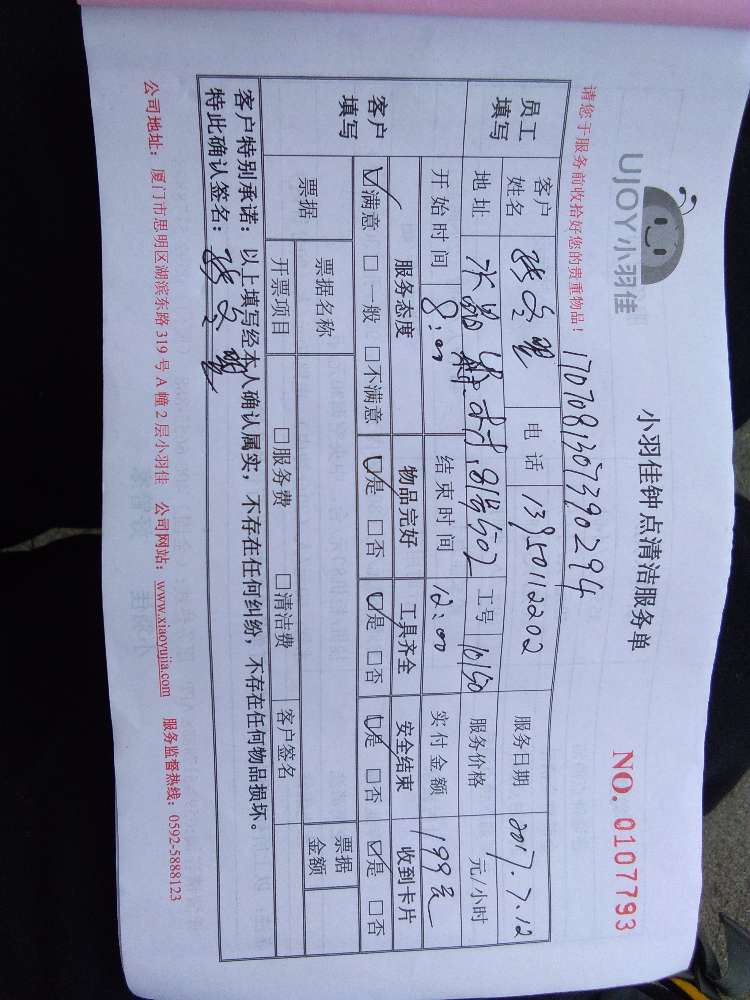 UJOY小羽佳
小羽佳钟点清洁服务单
NO. 0107793
请您于服务前收拾好您的贵重物品！
1707081307390294
员工填写 客户姓名 电话 13950112202 服务日期 2017.7.12
地址 81号502 工号 10150 服务价格 元/小时
开始时间 8:00 结束时间 12:00 实付金额 199元
客户填写 服务态度 物品完好 工具齐全 安全结束 收到卡片
☑满意 □一般 □不满意 ☑是 □否 ☑是 □否 ☑是 □否 ☑是 □否
票据 票据名称 客户签名 票据金额
开票项目 □服务费 □清洁费
客户特别承诺：以上填写经本人确认属实，不存在任何纠纷，不存在任何物品损坏。
特此确认签名：
公司地址：厦门市思明区湖滨东路 319 号 A 幢 2 层小羽佳 公司网站：www.xiaoyujia.com 服务监督热线：0592-5888123